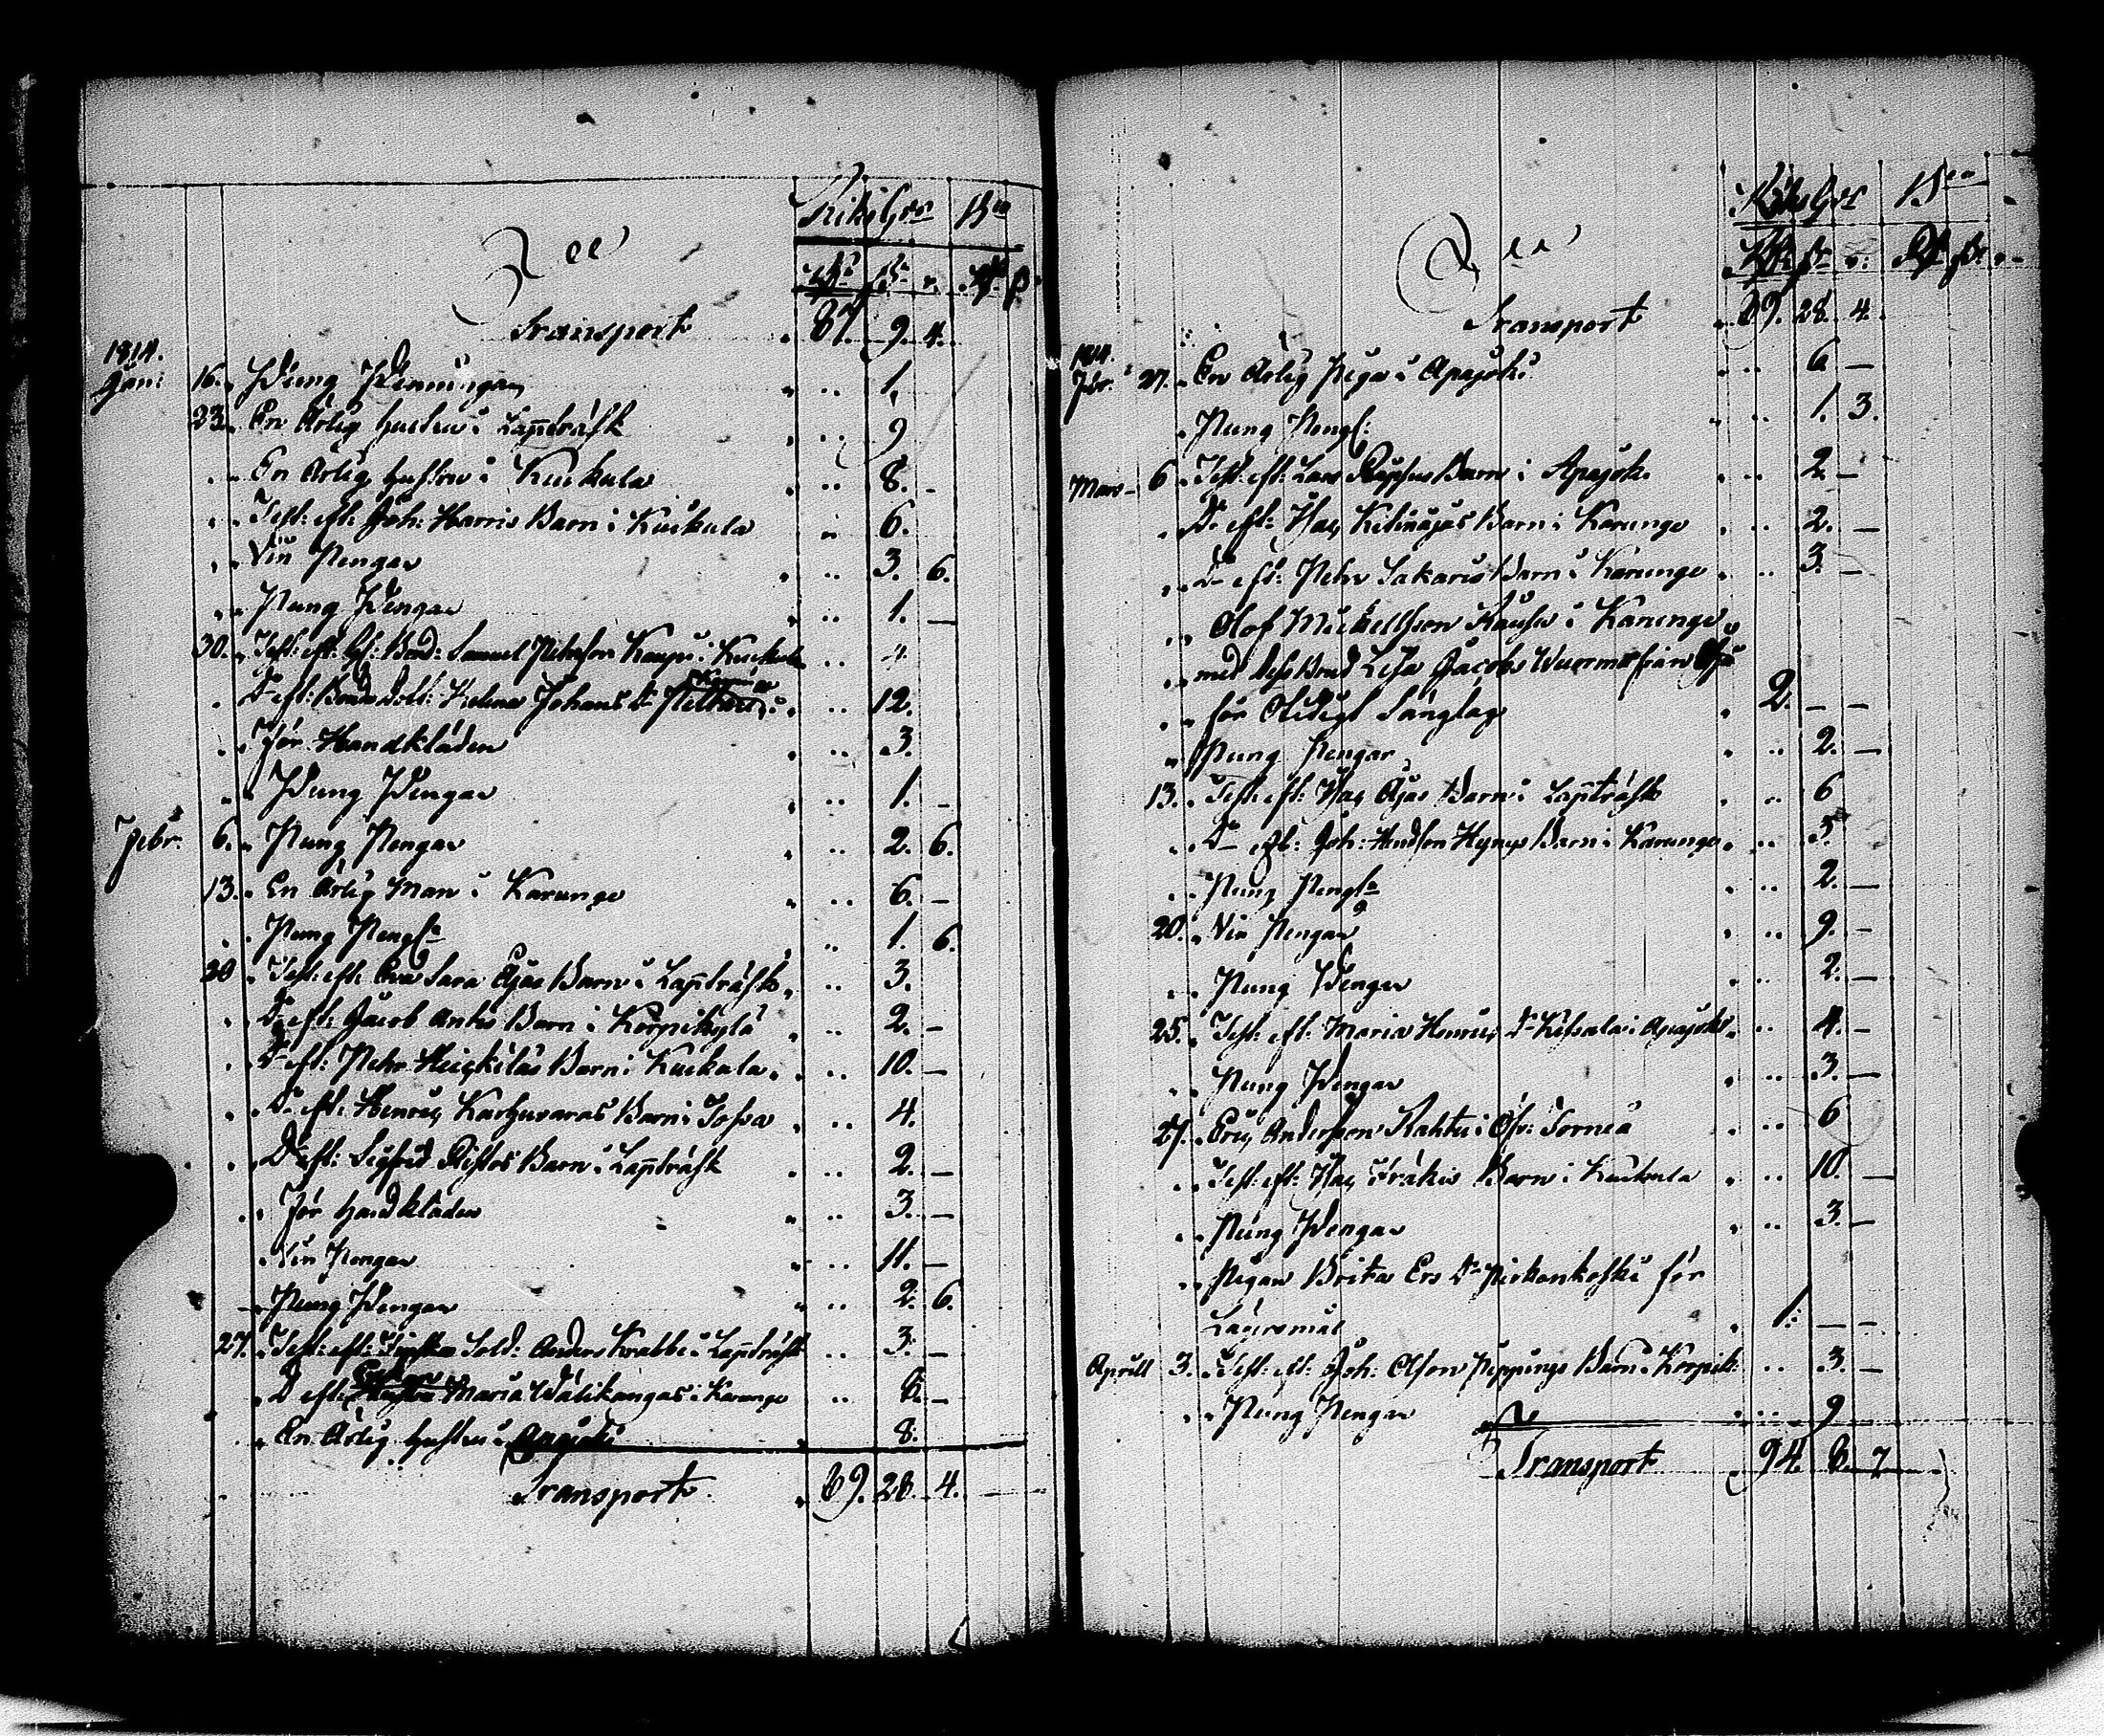 Riksgds Bco
Rd s r. Rd s
Transport 87. 9. 4.
1814.
Jan: 16. Pung Penningar 1.
23. En Ärlig hustru i Lappträsk 9
En Ärlig hustru i Kuckula 8. -
Test: eft: Joh: Harris Barn i Kuckula 6.
Vin Pengar 3. 6.
Pung Pengar 1. —
30. Test: eft: Bond: Samuel Pehrson Kaupi i Kuckula 4
Do eft: Bonde Dott: Helena Johans Dr 12.
För Handkläden 3.
Pung Pengar 1. -
Febr. 6. Pung Pengar 2. 6.
13. En Ärlig Man i Karunge 6. -
Pung Peng: 1. 6.
20 Test: eft: Sara Ajas Barn i Lappträsk 3.
Do eft: Jacob Antis Barn i Korpikylä 2. -
Do eft: Pehr Heickiläs Barn i Kuckula 10. —
Do eft: Henric Karhuvaras Barn i Tossa 4.
Do eft: Sigfrid Ristos Barn i Lappträsk 2. —
För handkläden 3. —
Vin Pengar 11. —
Pung Pengar 2. 6.
27. Test: eft: Sold: Anders Krabbe i Lappträsk 3. —
Do eft: Maria Wälikangas i Karunge 6. —
En Ärlig hustru i Apajoki 8.
Transport 89. 28. 4.
Riksgds Bco
Rd s r. Rd s r
Transport 89. 28. 4.
1814.
Febr. 27. En Ärlig Piga i Apajoki 6 —
Pung Peng: 1. 3.
Mars 6 Test: eft: Lars Barn i Apajoki 2 —
Do eft: Isac Kitinojas Barn i Karunge 2. —
Do eft: Pehr Sakaris Barn i Karunge 3. —
Olof Mickelsson i Karunge
med dess Lisa Jacobs Wuorma från
för Otidigt Sänglag 2. — —
Pung Pengar 2. —
13. Test: eft: Isac Ajas Barn i Lappträsk 6
Do eft: Joh: Hendson Hynys Barn i Karunge 3
Pung Peng: 2. —
20. Vin Pengar 9. -
Pung Pengar 2. —
25. Test: eft: Maria Henrics Dr i Apajoki 4. -
Pung Pengar 3. —
27. Eric Andersson Rahtu i Öfr: Torneå 6
Test: eft: Isac Fräkis Barn i Kuckula 10. —
Pung Pengar 3. —
Pigan Brita Ers Dr Pirkonkoski för
Lägersmål 1. — —
Aprill 3. Test: eft: Joh: Olson Peppings Barn i Korpik: 3. —
Pung Pengar 9
Transport 94. 8. 7